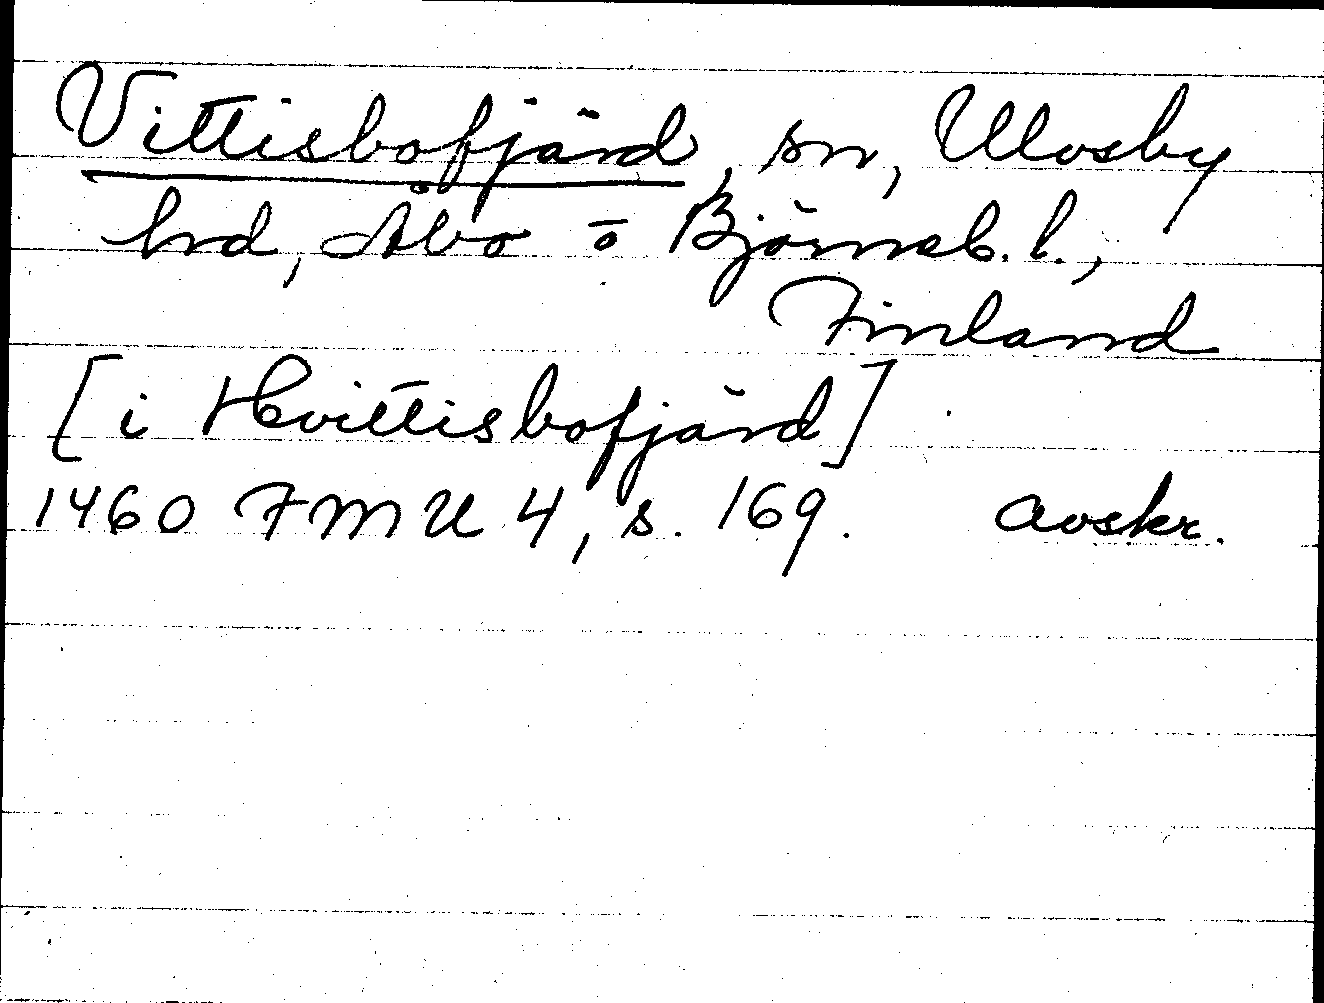 Vittisbofjärd, sn, Ulvsby
hrd, Åbo o Björneb. l.,
Finland
[i Hvittisbofjärd]
1460 FMU 4, s. 169. avskr.